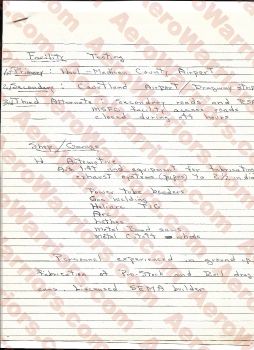 Facility Testing
1) Primary: Huol-Madison County Airport
2) Secondary: Courtland Airport / Dragway strip
3) Third Alternate - secondary roads and
MSFC facility access roads
closed during off hours
Shop / Garage
Automotive
equipment for fabricating
exhaust systems (pipes) to 3½ in dia
Power Tube benders
Gas welding
Heliarc TIG
Arc
Lathes
Metal Band saws
Metal Cutoff
Personnel experienced in ground up
Fabrication of Pro-Stock and Rail drag
cars. Licensed SEMA builder
AeroWorriors.com